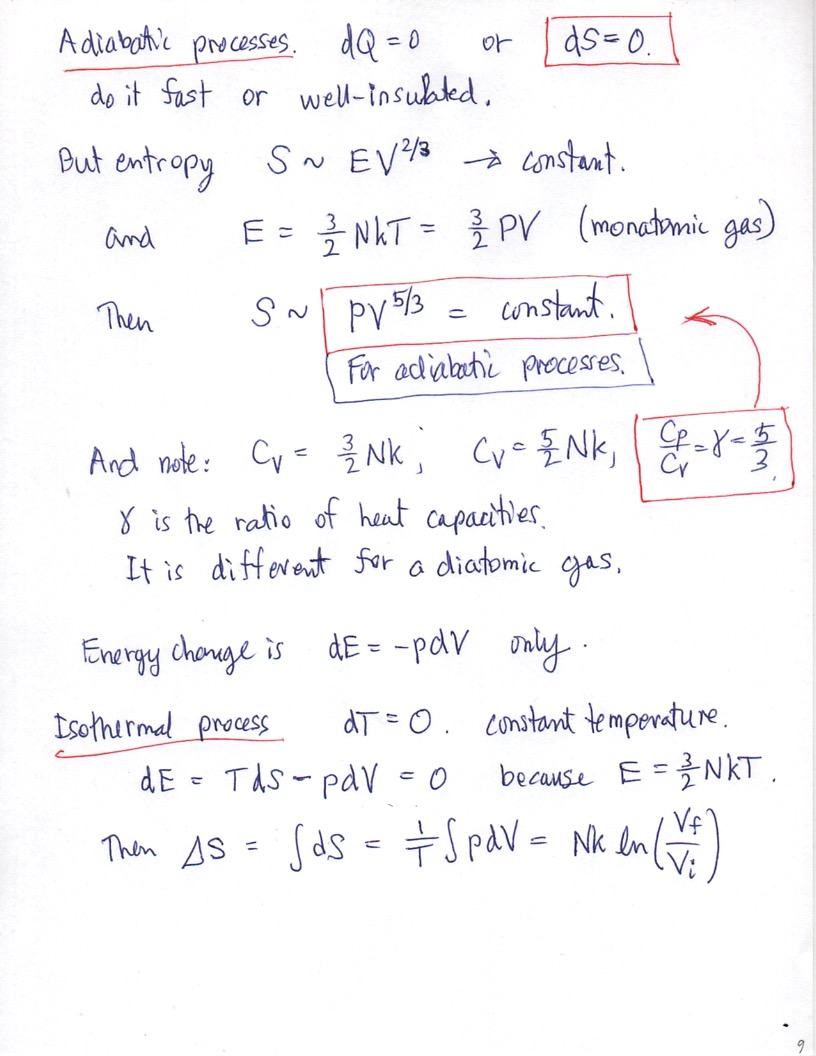 Adiabatic processes. dQ = 0 or dS = 0.
do it fast or well-insulated.
But entropy S ~ EV^{2/3} → constant.
and E = \frac{3}{2} NkT = \frac{3}{2} PV (monatomic gas)
Then S ~ PV^{5/3} = constant.
For adiabatic processes.
And note: C_V = \frac{3}{2} Nk; C_V = \frac{5}{2} Nk, \frac{C_P}{C_V} = γ = \frac{5}{3}.
γ is the ratio of heat capacities.
It is different for a diatomic gas.
Energy change is dE = -pdV only.
Isothermal process dT = 0. constant temperature.
dE = TdS - pdV = 0 because E = \frac{3}{2} NkT.
Then ΔS = ∫dS = \frac{1}{T} ∫pdV = Nk ln(\frac{V_f}{V_i})
9